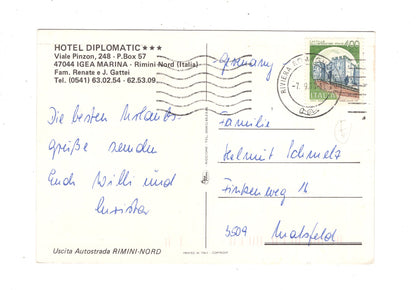 HOTEL DIPLOMATIC ★★★
Viale Pinzon, 248 - P.Box 57
47044 IGEA MARINA - Rimini Nord (Italia)
Fam. Renate e J. Gattei
Tel. (0541) 63.02.54 - 62.53.09
Die besten Urlaubs-
grüße senden
Euch Willi und
Uscita Autostrada RIMINI-NORD
Germany
400
ITALIA
RIVIERA
Familie
Helmut Schmelz
Finkenweg 16
3509 Malsfeld